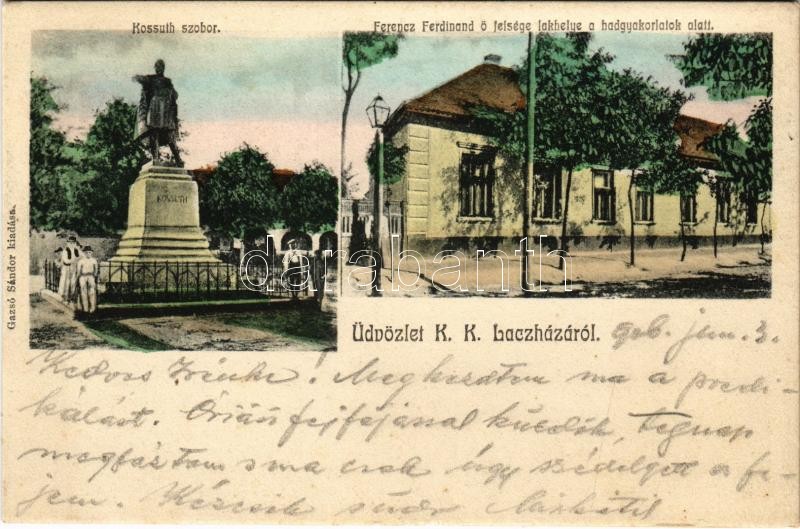 Kossuth szobor.
Ferencz Ferdinand ő felsége lakhelye a hadgyakorlatok alatt.
KOSSUTH
Gazsó Sándor kiadása.
darabanth
Üdvözlet K. K. Laczházáról.
Kedves! Megkezdtem ma a predi-
kálást. Óriási fejfájással küzdök, tegnap
megfáztam s ma csak úgy szédelget a fe-
jem. Kézcsók